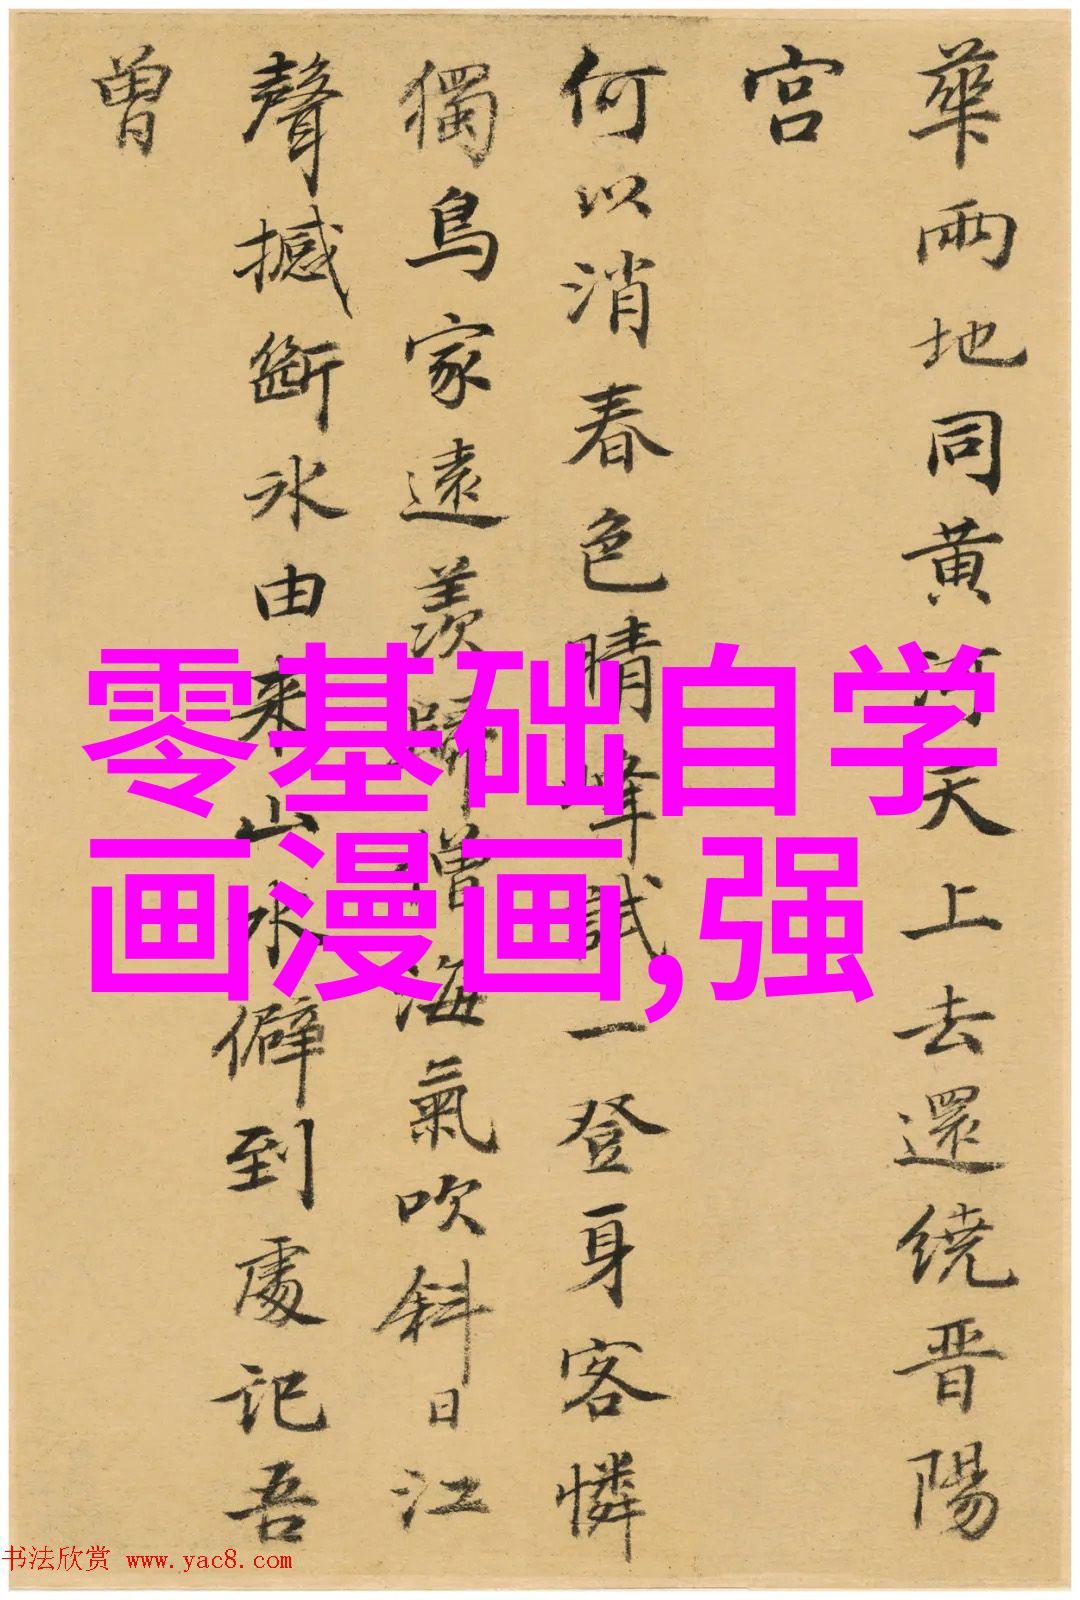 華兩地同黄河天上去還繞晋陽
宫
何以消春色晴峰試一登身客憐
獨鳥家遠羨歸僧海氣吹斜日江
聲撼斷冰由来山水僻到處記吾
曾
零基础自学
画漫画,强
书法欣赏 www.yac8.com